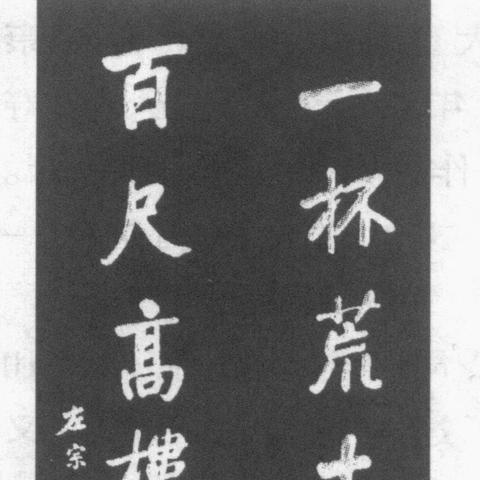 一杯荒土
百尺高樓
左宗